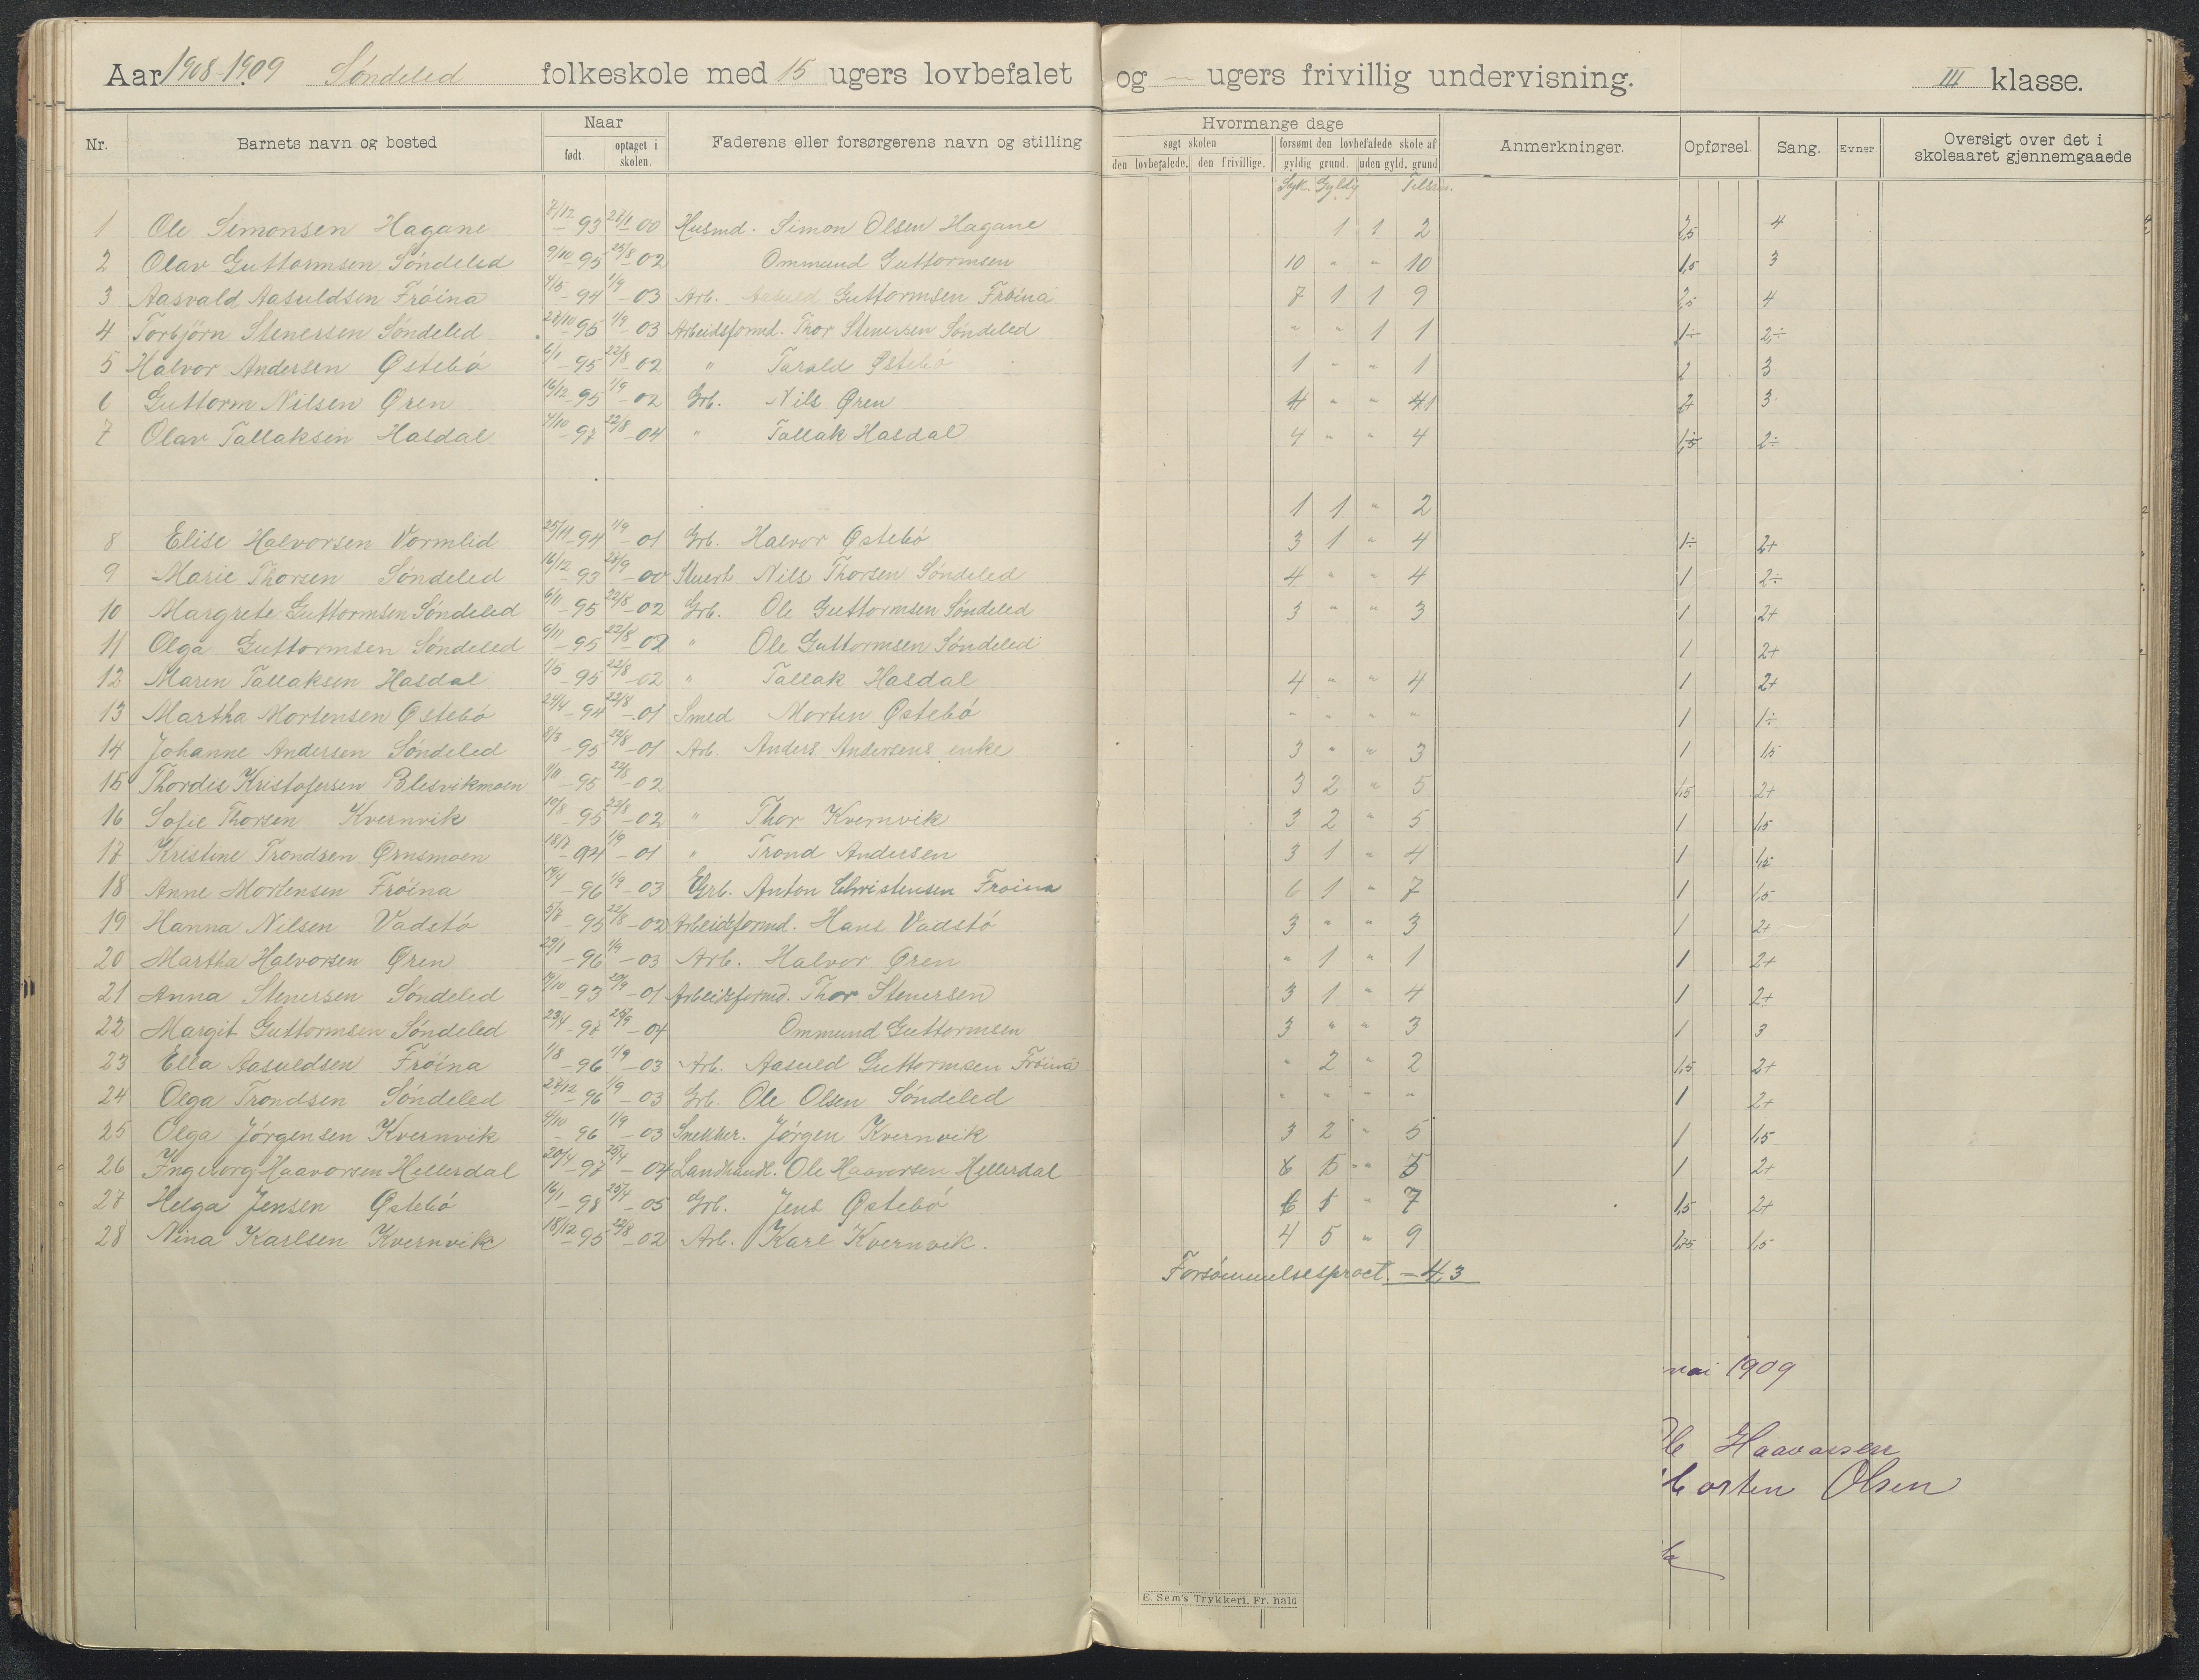 Aar 1908-1909 Søndeled folkeskole med 15 ugers lovbefalet og — ugers frivillig undervisning. III klasse.
Nr. Barnets navn og bosted Naar født optaget i skolen. Faderens eller forsørgerens navn og stilling Hvormange dage søgt skolen den lovbefalede. den frivillige. forsømt den lovbefalede skole af gyldig grund. uden gyld. grund Anmerkninger. Opførsel. Sang. Evner Oversigt over det i skoleaaret gjennemgaaede
Syk. Gyldig
1 Ole Simonsen Hagane 7/12-93 28/1-00 Husmd. Simon Olsen Hagane 1 1 2 2,5 4
2 Olav Guttormsen Søndeled 9/10-95 25/8-02 Ommund Guttormsen 10 " " 10 1,5 3
3 Aasvald Aasuldsen Fröina 4/5-94 1/9-03 Arb. Aasuld Guttormsen Fröina 7 1 1 9 2,5 4
4 Torbjörn Stenersen Söndeled 28/10-95 1/9-03 Arbeidsformd. Thor Stenersen Söndeled " " 1 1 1÷ 2÷
5 Halvor Andersen Østebö 6/1-95 22/8-02 " Tarald Østebö 1 " " 1 2 3
6 Guttorm Nilsen Øren 16/12-95 1/9-02 Grb. Nils Øren 4 " " 41 2+ 3
7 Olav Tallaksen Hasdal 4/10-97 22/8-04 " Tallak Hasdal 4 " " 4 1,5 2÷
1 1 " 2
8 Elise Halvorsen Vormlid 25/11-94 1/9-01 Grb. Halvor Østebö 3 1 " 4 1÷ 2+
9 Marie Thorsen Söndeled 16/12-93 28/9-00 Stuert Nils Thorsen Söndeled 4 " " 4 1 2÷
10 Margrete Guttormsen Söndeled 6/11-95 22/8-02 Grb. Ole Guttormsen Söndeled 3 " " 3 1 2+
11 Olga Guttormsen Söndeled 6/11-95 22/8-02 " Ole Guttormsen Söndeled 1 2+
12 Maren Tallaksen Hasdal 1/5-95 22/8-02 " Tallak Hasdal 4 " " 4 1 2+
13 Martha Mortensen Østebö 24/4-94 22/8-01 Smed Morten Østebö " " " " 1 1÷
14 Johanne Andersen Söndeled 8/3-95 22/8-01 Arb. Anders Andersens enke 3 " " 3 1 1,5
15 Thordis Kristofersen Blesvikmoen 1/11-95 22/8-02 3 2 " 5 1,5 2+
16 Sofie Thorsen Kvernvik 10/8-95 22/8-02 " Thor Kvernvik 3 2 " 5 1 1,5
17 Kristine Trondsen Ørnsmoen 18/7-94 1/9-01 " Trond Andersen 3 1 " 4 1 1,5
18 Anne Mortensen Fröina 19/4-96 1/9-03 Grb. Anton Christensen Fröina 6 1 " 7 1 1,5
19 Hanna Nilsen Vadstö 3/7-95 22/8-02 Arbeidsformd. Hans Vadstö 3 " " 3 1 2+
20 Martha Halvorsen Øren 29/1-96 1/9-03 Arb. Halvor Øren " 1 " 1 1 2+
21 Anna Stenersen Söndeled 14/10-93 20/9-01 Arbeidsformd. Thor Stenersen 3 1 " 4 1 2+
22 Margit Guttormsen Söndeled 23/4-97 25/9-04 Ommund Guttormsen 3 " " 3 1 3
23 Ella Aasuldsen Fröina 1/8-96 1/9-03 Arb. Aasuld Guttormsen Fröina " 2 " 2 1,5 2+
24 Olga Trondsen Söndeled 27/12-96 1/9-03 Grb. Ole Olsen Söndeled " " " " 1 2+
25 Olga Jörgensen Kvernvik 4/10-96 1/9-03 Snekker. Jörgen Kvernvik 3 2 " 5 1 1,5
26 Ingeborg Haavorsen Hellerdal 20/4-97 25/4-04 Landhandl. Ole Haavorsen Hellerdal 5 1 2+
27 Helga Jensen Østebö 16/1-98 25/4-05 Grb. Jens Østebö 6 1 " 7 1,5 2+
28 Nina Karlsen Kvernvik 18/12-95 22/8-02 Arb. Karl Kvernvik. 4 5 " 9 1,25 1,5
Forsömmelsesproct. – 4,3
mai 1909
Haavorsen
orten Olsen
E. Sem's Trykkeri, Fr. hald